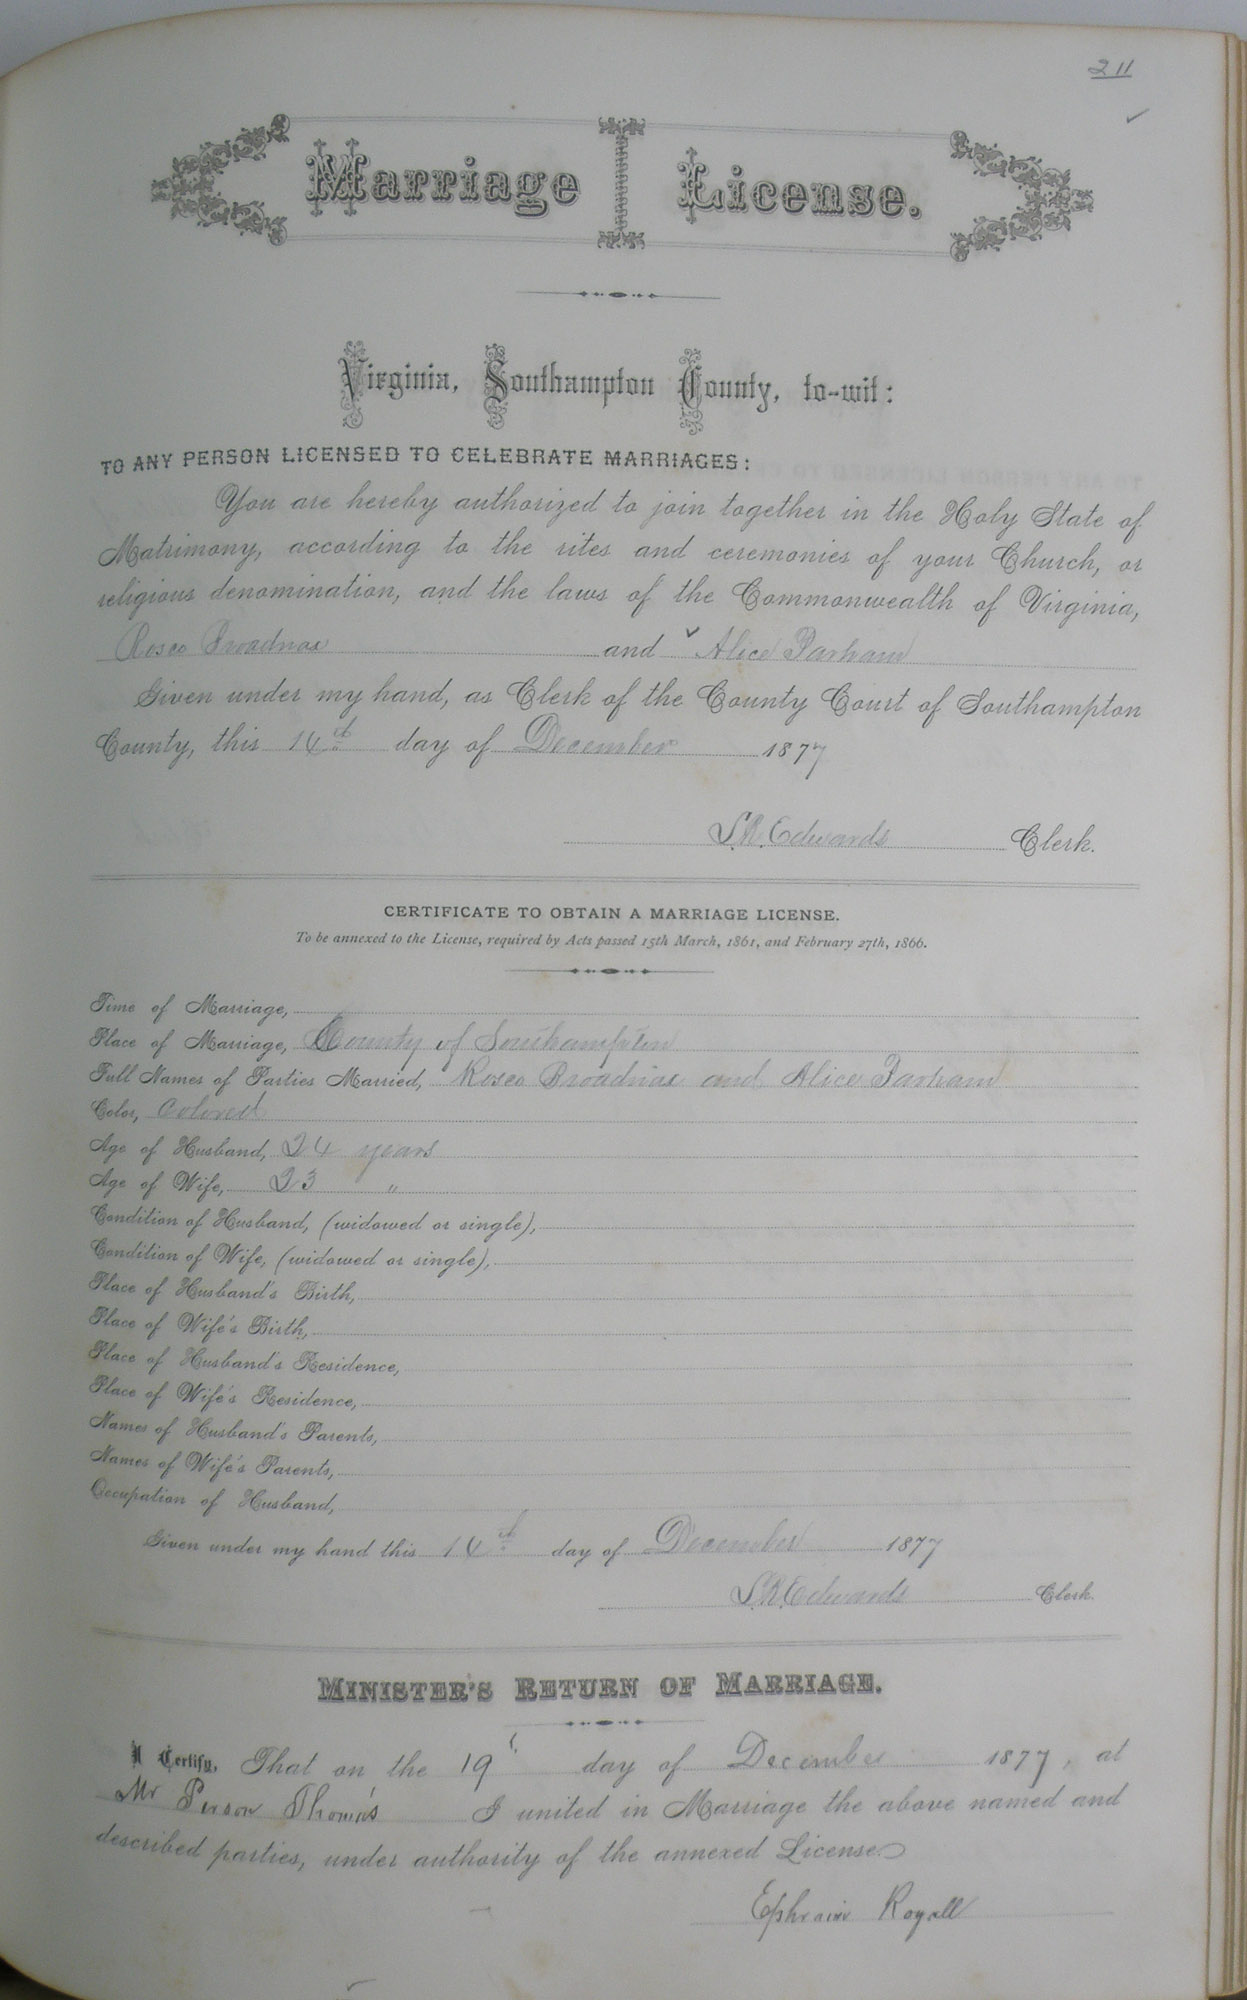 211
Marriage License.
Virginia, Southampton County, to-wit:
TO ANY PERSON LICENSED TO CELEBRATE MARRIAGES:
You are hereby authorized to join together in the Holy State of
Matrimony, according to the rites and ceremonies of your Church, or
religious denomination, and the laws of the Commonwealth of Virginia,
Rosco Broadnax and Alice Parham
Given under my hand, as Clerk of the County Court of Southampton
County, this 14th day of December 1877
L.R. Edwards Clerk.
CERTIFICATE TO OBTAIN A MARRIAGE LICENSE.
To be annexed to the License, required by Acts passed 15th March, 1861, and February 27th, 1866.
Time of Marriage,
Place of Marriage, County of Southampton
Full Names of Parties Married, Rosco Broadnax and Alice Parham
Color, Colored
Age of Husband, 24 years
Age of Wife, 23 "
Condition of Husband, (widowed or single),
Condition of Wife, (widowed or single),
Place of Husband's Birth,
Place of Wife's Birth,
Place of Husband's Residence,
Place of Wife's Residence,
Names of Husband's Parents,
Names of Wife's Parents,
Occupation of Husband,
Given under my hand this 14th day of December 1877
L.R. Edwards Clerk.
MINISTER'S RETURN OF MARRIAGE.
I Certify, That on the 19 day of December 1877, at
Mr Person Thomas I united in Marriage the above named and
described parties, under authority of the annexed License
Ephraim Royall